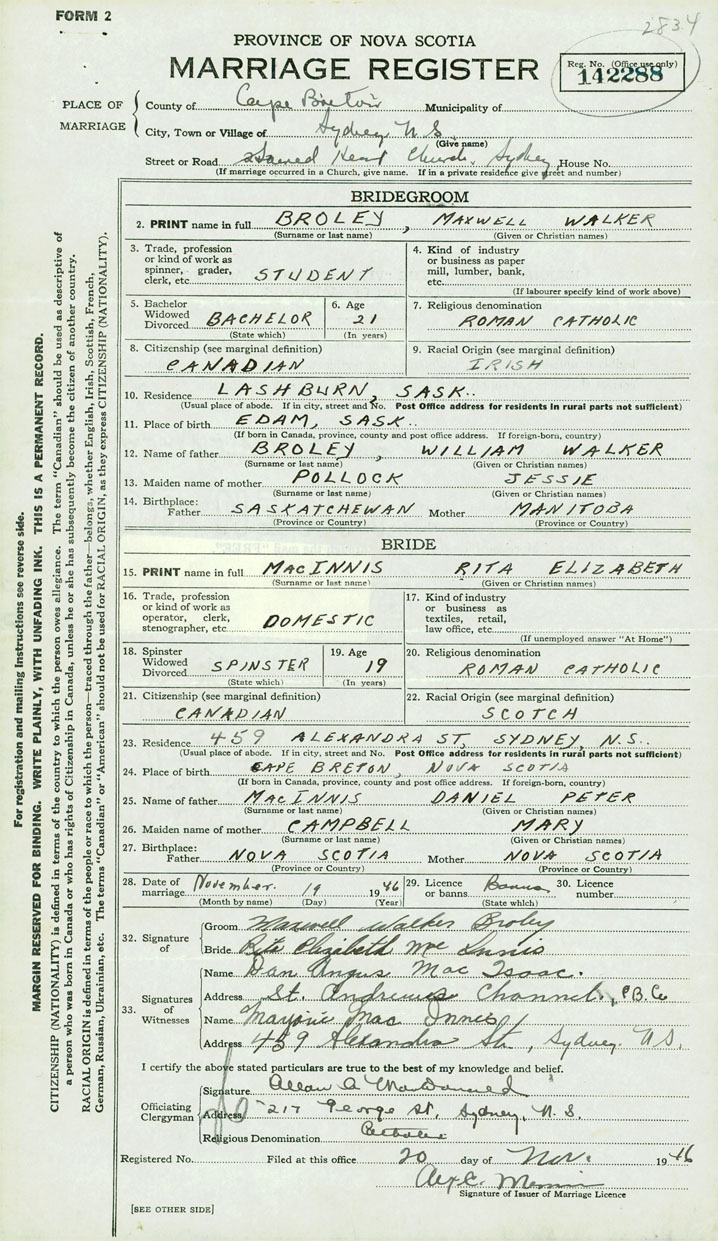 FORM 2
2834
PROVINCE OF NOVA SCOTIA
MARRIAGE REGISTER
Reg. No. (Office use only)
142288
PLACE OF MARRIAGE
County of Cape Breton Municipality of
City, Town or Village of Sydney N.S.
(Give name)
Street or Road Sacred Heart Church, Sydney House No.
(If marriage occurred in a Church, give name. If in a private residence give street and number)
BRIDEGROOM
2. PRINT name in full BROLEY, MAXWELL WALKER
(Surname or last name) (Given or Christian names)
3. Trade, profession or kind of work as spinner, grader, clerk, etc. STUDENT
4. Kind of industry or business as paper mill, lumber, bank, etc.
(If labourer specify kind of work above)
5. Bachelor Widowed Divorced BACHELOR
(State which)
6. Age 21
(In years)
7. Religious denomination
ROMAN CATHOLIC
8. Citizenship (see marginal definition)
CANADIAN
9. Racial Origin (see marginal definition)
IRISH
10. Residence LASHBURN, SASK.
(Usual place of abode. If in city, street and No. Post Office address for residents in rural parts not sufficient)
11. Place of birth EDAM, SASK.
(If born in Canada, province, county and post office address. If foreign-born, country)
12. Name of father BROLEY, WILLIAM WALKER
(Surname or last name) (Given or Christian names)
13. Maiden name of mother POLLOCK JESSIE
(Surname or last name) (Given or Christian names)
14. Birthplace: Father SASKATCHEWAN Mother MANITOBA
(Province or Country) (Province or Country)
BRIDE
15. PRINT name in full MACINNIS RITA ELIZABETH
(Surname or last name) (Given or Christian names)
16. Trade, profession or kind of work as operator, clerk, stenographer, etc. DOMESTIC
17. Kind of industry or business as textiles, retail, law office, etc.
(If unemployed answer "At Home")
18. Spinster Widowed Divorced SPINSTER
(State which)
19. Age 19
(In years)
20. Religious denomination
ROMAN CATHOLIC
21. Citizenship (see marginal definition)
CANADIAN
22. Racial Origin (see marginal definition)
SCOTCH
23. Residence 459 ALEXANDRA ST. SYDNEY, N.S.
(Usual place of abode. If in city, street and No. Post Office address for residents in rural parts not sufficient)
24. Place of birth CAPE BRETON, NOVA SCOTIA
(If born in Canada, province, county and post office address. If foreign-born, country)
25. Name of father MACINNIS DANIEL PETER
(Surname or last name) (Given or Christian names)
26. Maiden name of mother CAMPBELL MARY
(Surname or last name) (Given or Christian names)
27. Birthplace: Father NOVA SCOTIA Mother NOVA SCOTIA
(Province or Country) (Province or Country)
28. Date of marriage November 19 1946
(Month by name) (Day) (Year)
29. Licence or banns Banns
(State which)
30. Licence number
32. Signature of
Groom Maxwell Walker Broley
Bride Rita Elizabeth Mac Innis
33. Signatures of Witnesses
Name Dan Angus Mac Isaac.
Address St. Andrews Channel, C.B. Co
Name Marjorie Mac Innes
Address 459 Alexandra St., Sydney. N.S.
I certify the above stated particulars are true to the best of my knowledge and belief.
Officiating Clergyman
Signature Allan A MacDonald
Address 217 George St, Sydney, N.S.
Religious Denomination Catholic
Registered No. Filed at this office 20 day of Nov. 1946
Signature of Issuer of Marriage Licence
[SEE OTHER SIDE]
For registration and mailing instructions see reverse side.
MARGIN RESERVED FOR BINDING. WRITE PLAINLY, WITH UNFADING INK. THIS IS A PERMANENT RECORD.
CITIZENSHIP (NATIONALITY) is defined in terms of the country to which the person owes allegiance. The term "Canadian" should be used as descriptive of
a person who was born in Canada or who has rights of Citizenship in Canada, unless he or she has subsequently become the citizen of another country.
RACIAL ORIGIN is defined in terms of the people or race to which the person—traced through the father—belongs, whether English, Irish, Scottish, French,
German, Russian, Ukrainian, etc. The terms "Canadian" or "American" should not be used for RACIAL ORIGIN, as they express CITIZENSHIP (NATIONALITY).